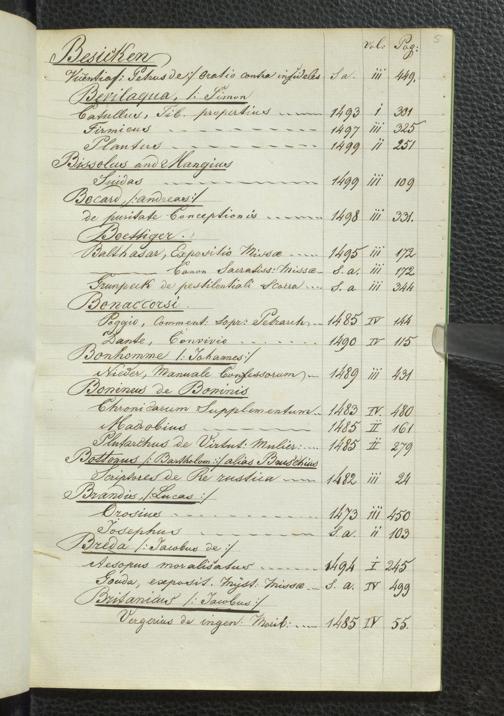 5
Vol: Pag:
Besicken
Vicentiaf: Petrus de :/ Oratio contra infideles S a. iii 449.
Bevilaqua, /: Simon
Catullus, Tib. propertius 1493 i 301
Firmicus 1497 iii 325
1499 ii 251
Bissolus and Mangius
Suidas 1499 iii 109
Bocard /:andreas:/
de puritate Conceptionis 1498 iii 331.
Boettiger.
Balthasar, Expositio Missæ 1495 iii 172
Canon Sacratiss: Missæ S. a. iii 172
de pestilentiali Scorra S. a iii 344
Bonaccorsi.
Poggio, Comment. sopr: Petrarch 1485 IV 144
Dante, Convivio 1490 IV 115
Bonhomme /: Johannes:/
Nider, Manuale Confessorum 1489 iii 431
Boninus de Boninis
Chronicarum Supplementum 1483 IV. 480
Macrobius 1485 ii 161.
Plutarchus de Virtut: Mulier: 1485 ii 279
Bottonus /: Barthelom:/ alias Bruschius
Scriptores de Re rustica 1482 iii 24
Brandis, /:Lucas:/
Orosius 1473 iii 450
Josephus S. a. ii 103
Breda /: Jacobus de :/
Aesopus moralisatus 1494 I 245
Gouda, exposit. Myst. Missæ S. a. IV 499
Britanicus /: Jacobus:/
Vergerius de ingen: Morib: 1485 IV 55.